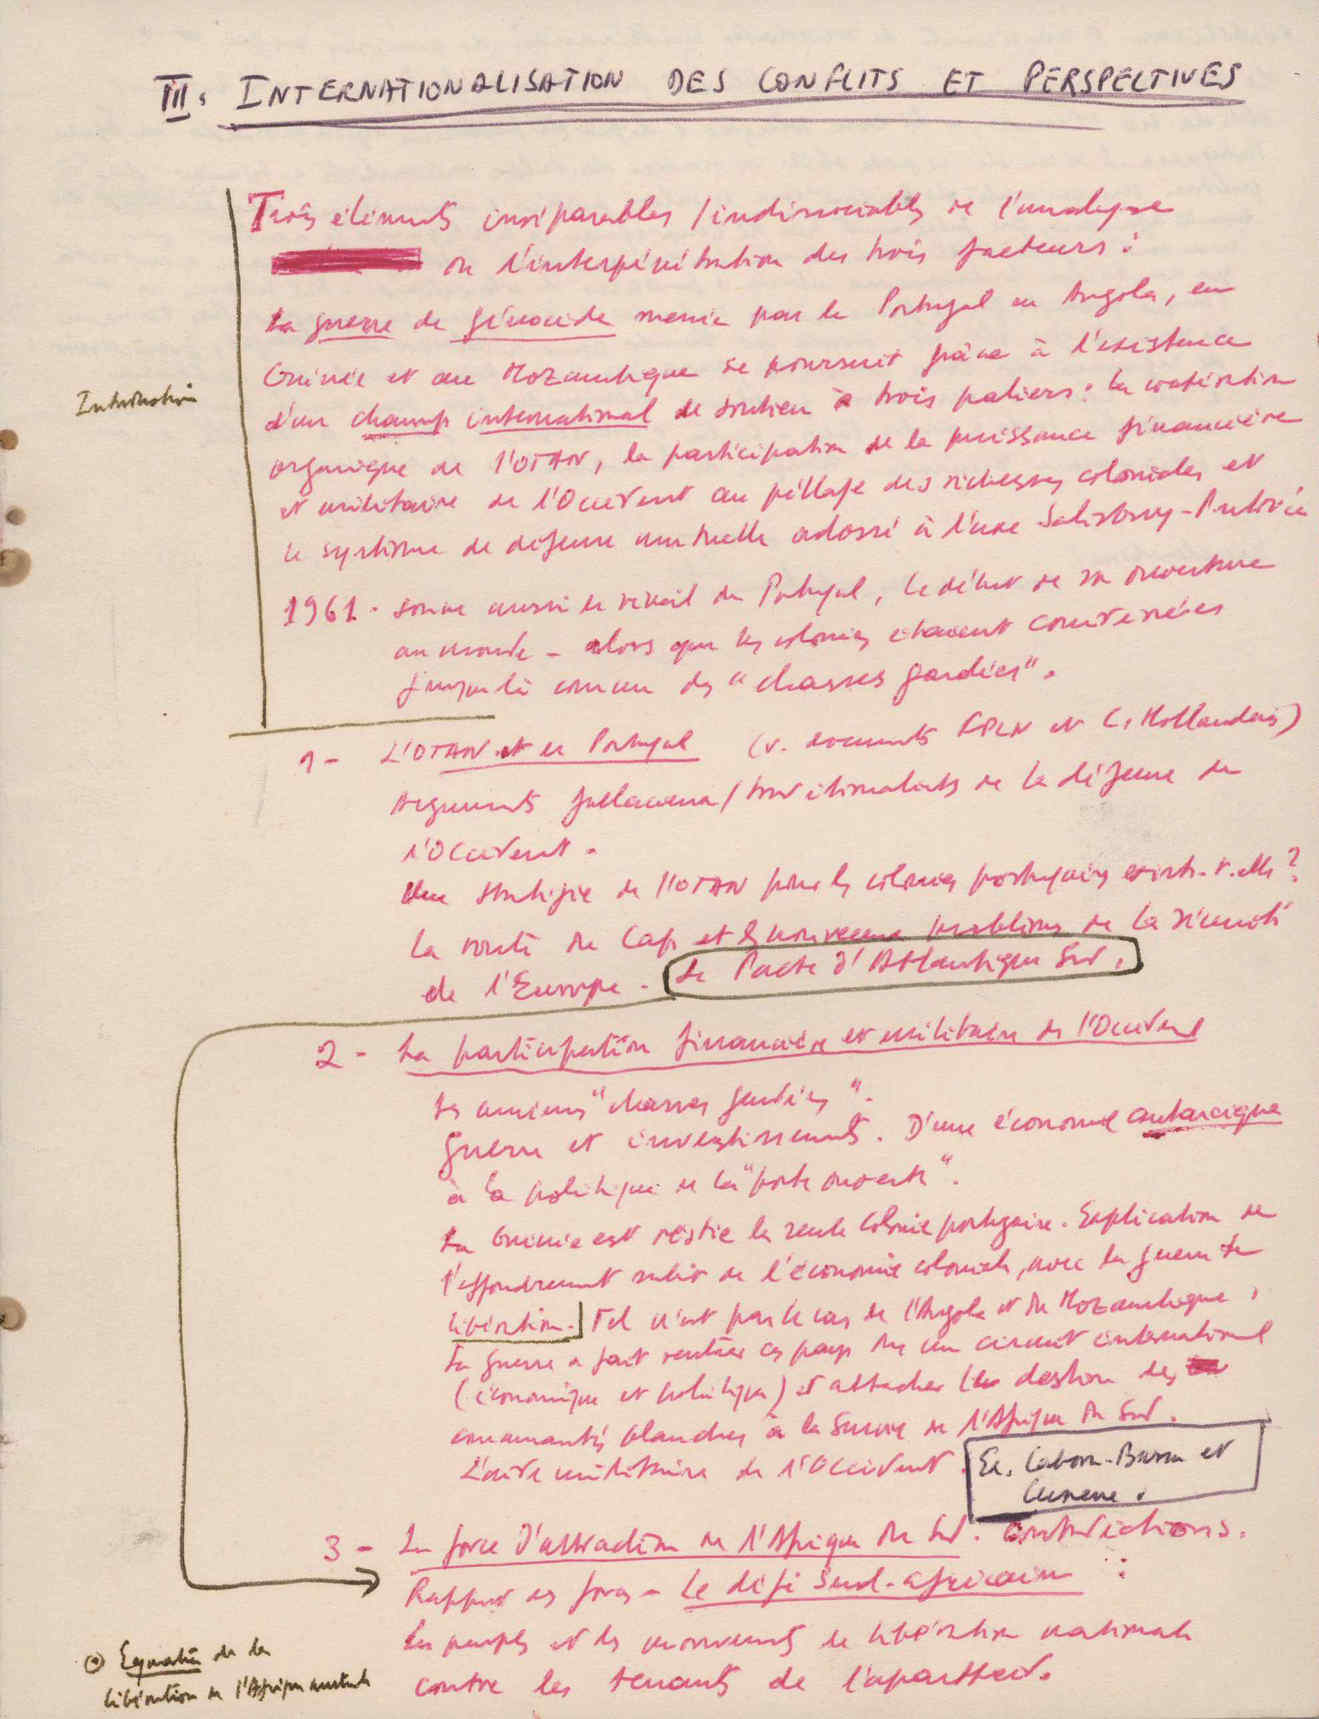 III. INTERNATIONALISATION DES CONFLITS ET PERSPECTIVES
Trois éléments inséparables / indissociables de l'analyse
ou l'interpénétration des trois facteurs :
La guerre de génocide menée par le Portugal en Angola, en
Guinée et au Mozambique se poursuit grâce à l'existence
Introduction
d'un champ international de soutien à trois paliers : la
organique de l'OTAN, la participation de la puissance financière
et militaire de l'Occident au pillage des richesses coloniales et
le système de défense mutuelle adossé à l'axe Salisbury-Pretoria
1961. sonne aussi le réveil du Portugal, le début de son ouverture
au monde - alors que les colonies étaient considérées
jusque là comme des "chasses gardées".
1- L'OTAN et le Portugal (v. documents FPLN et C. Hollandais)
Arguments fallacieux / de la défense de
l'Occident.
Une stratégie de l'OTAN pour les colonies portugaises existe-t-elle ?
La route du Cap et les nouveaux problèmes de la sécurité
de l'Europe. Le Pacte d'Atlantique Sud.
2- La participation financière et militaire de l'Occident
Les anciens "chasses gardées".
Guerre et investissements. D'une économie autarcique
à la politique de la "porte ouverte".
La Guinée est restée la seule colonie portugaise. Explication de
l'effondrement subit de l'économie coloniale, avec la guerre de
libération. Tel n'est pas le cas de l'Angola et du Mozambique,
La guerre a fait rentrer ces pays ds un circuit international
(économique et politique) et attacher le destin des
communautés blanches à la survie de l'Afrique du Sud.
L'aide militaire de l'Occident. Ex. Cabora-Bassa et
Cunene.
3- La force d'attraction de l'Afrique du Sud. Contradictions.
Rapport des forces - Le défi sud-africain :
Les peuples et les mouvements de libération nationale
contre les tenants de l'apartheid.
Equation de la
libération de l'Afrique australe